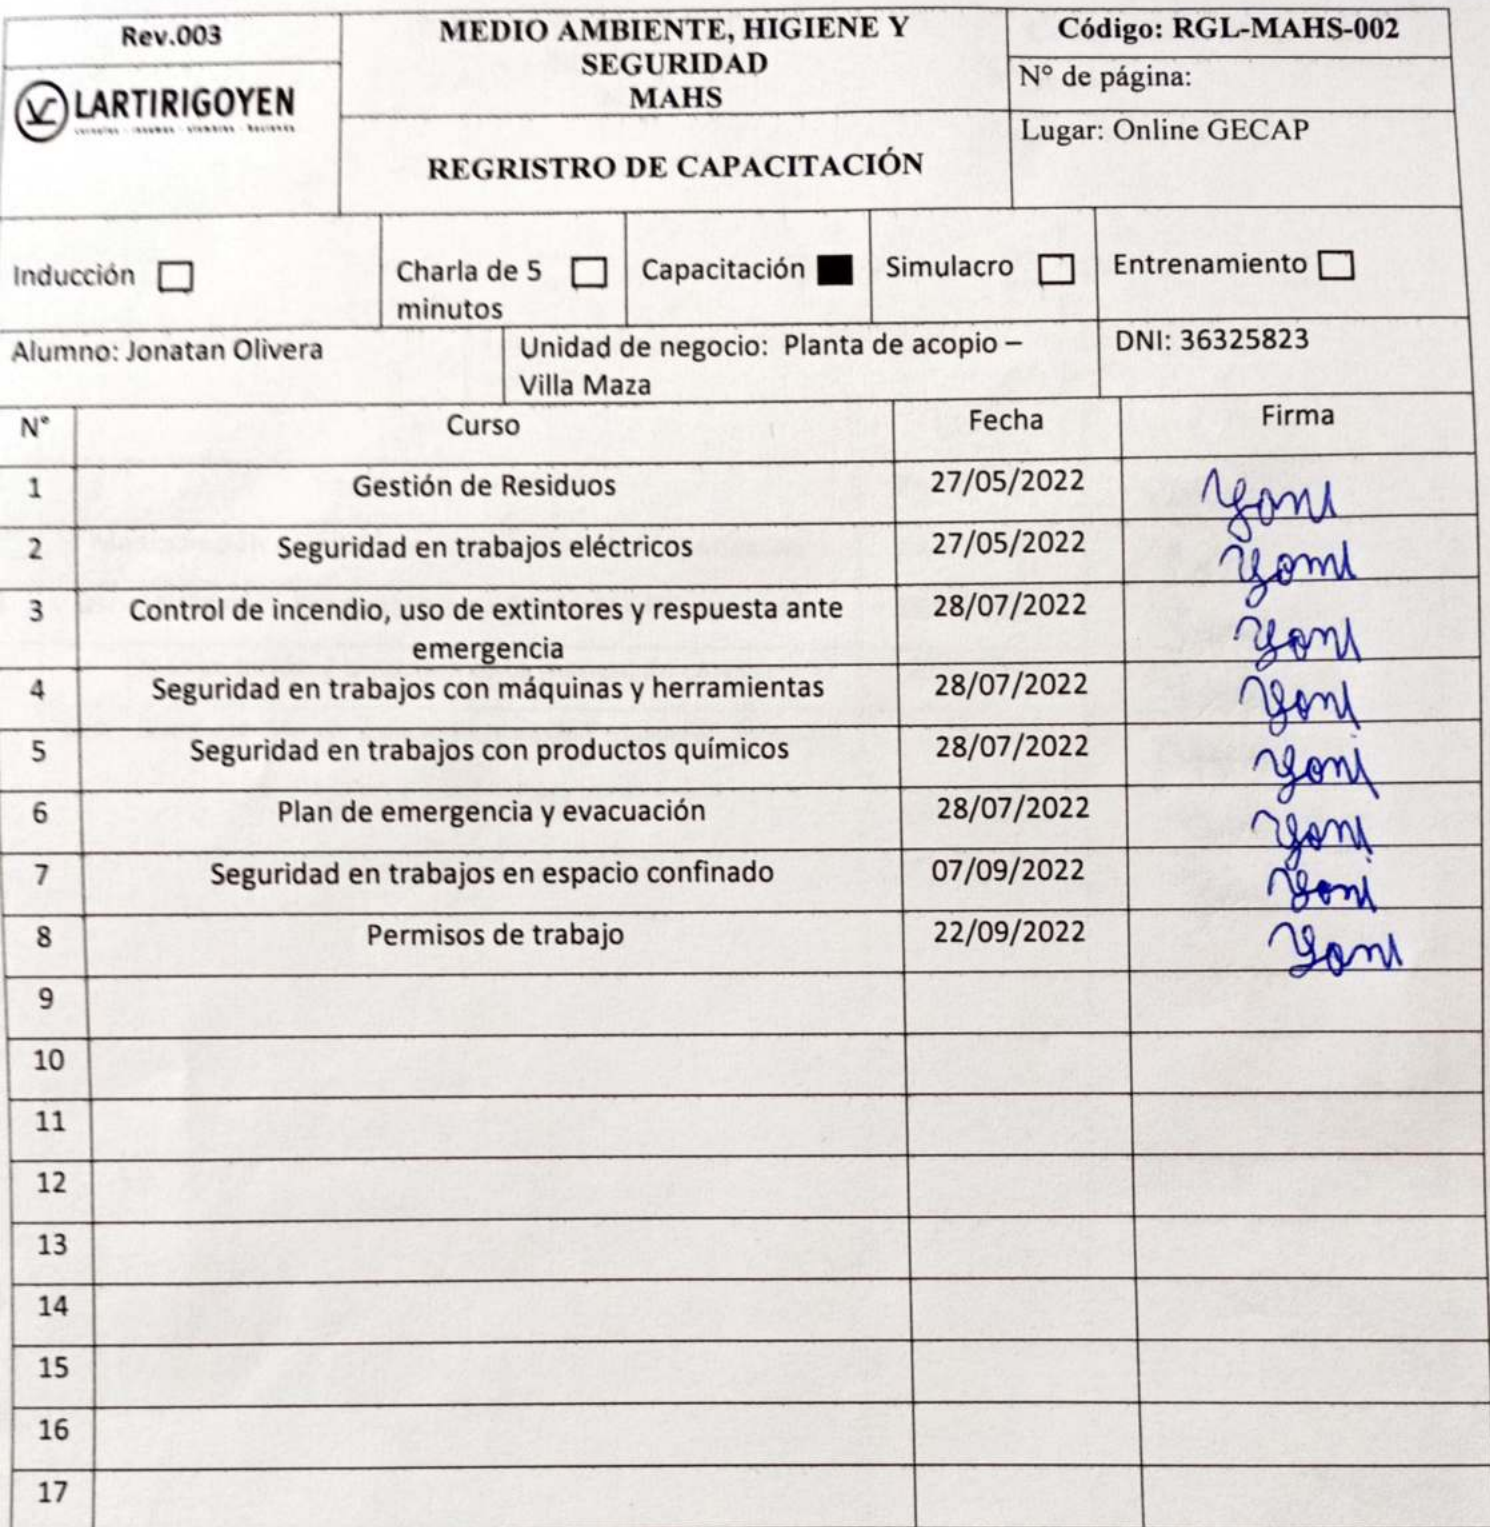 Rev.003
MEDIO AMBIENTE, HIGIENE Y
SEGURIDAD
MAHS
Código: RGL-MAHS-002
N° de página:
LARTIRIGOYEN
REGRISTRO DE CAPACITACIÓN
Lugar: Online GECAP
Inducción
Charla de 5
minutos
Capacitación
Simulacro
Entrenamiento
Alumno: Jonatan Olivera
Unidad de negocio: Planta de acopio –
Villa Maza
DNI: 36325823
N° Curso Fecha Firma
1 Gestión de Residuos 27/05/2022 Yoni
2 Seguridad en trabajos eléctricos 27/05/2022 Yoni
3 Control de incendio, uso de extintores y respuesta ante 28/07/2022 Yoni
emergencia
4 Seguridad en trabajos con máquinas y herramientas 28/07/2022 Yoni
5 Seguridad en trabajos con productos químicos 28/07/2022 Yoni
6 Plan de emergencia y evacuación 28/07/2022 Yoni
7 Seguridad en trabajos en espacio confinado 07/09/2022 Yoni
8 Permisos de trabajo 22/09/2022 Yoni
9
10
11
12
13
14
15
16
17